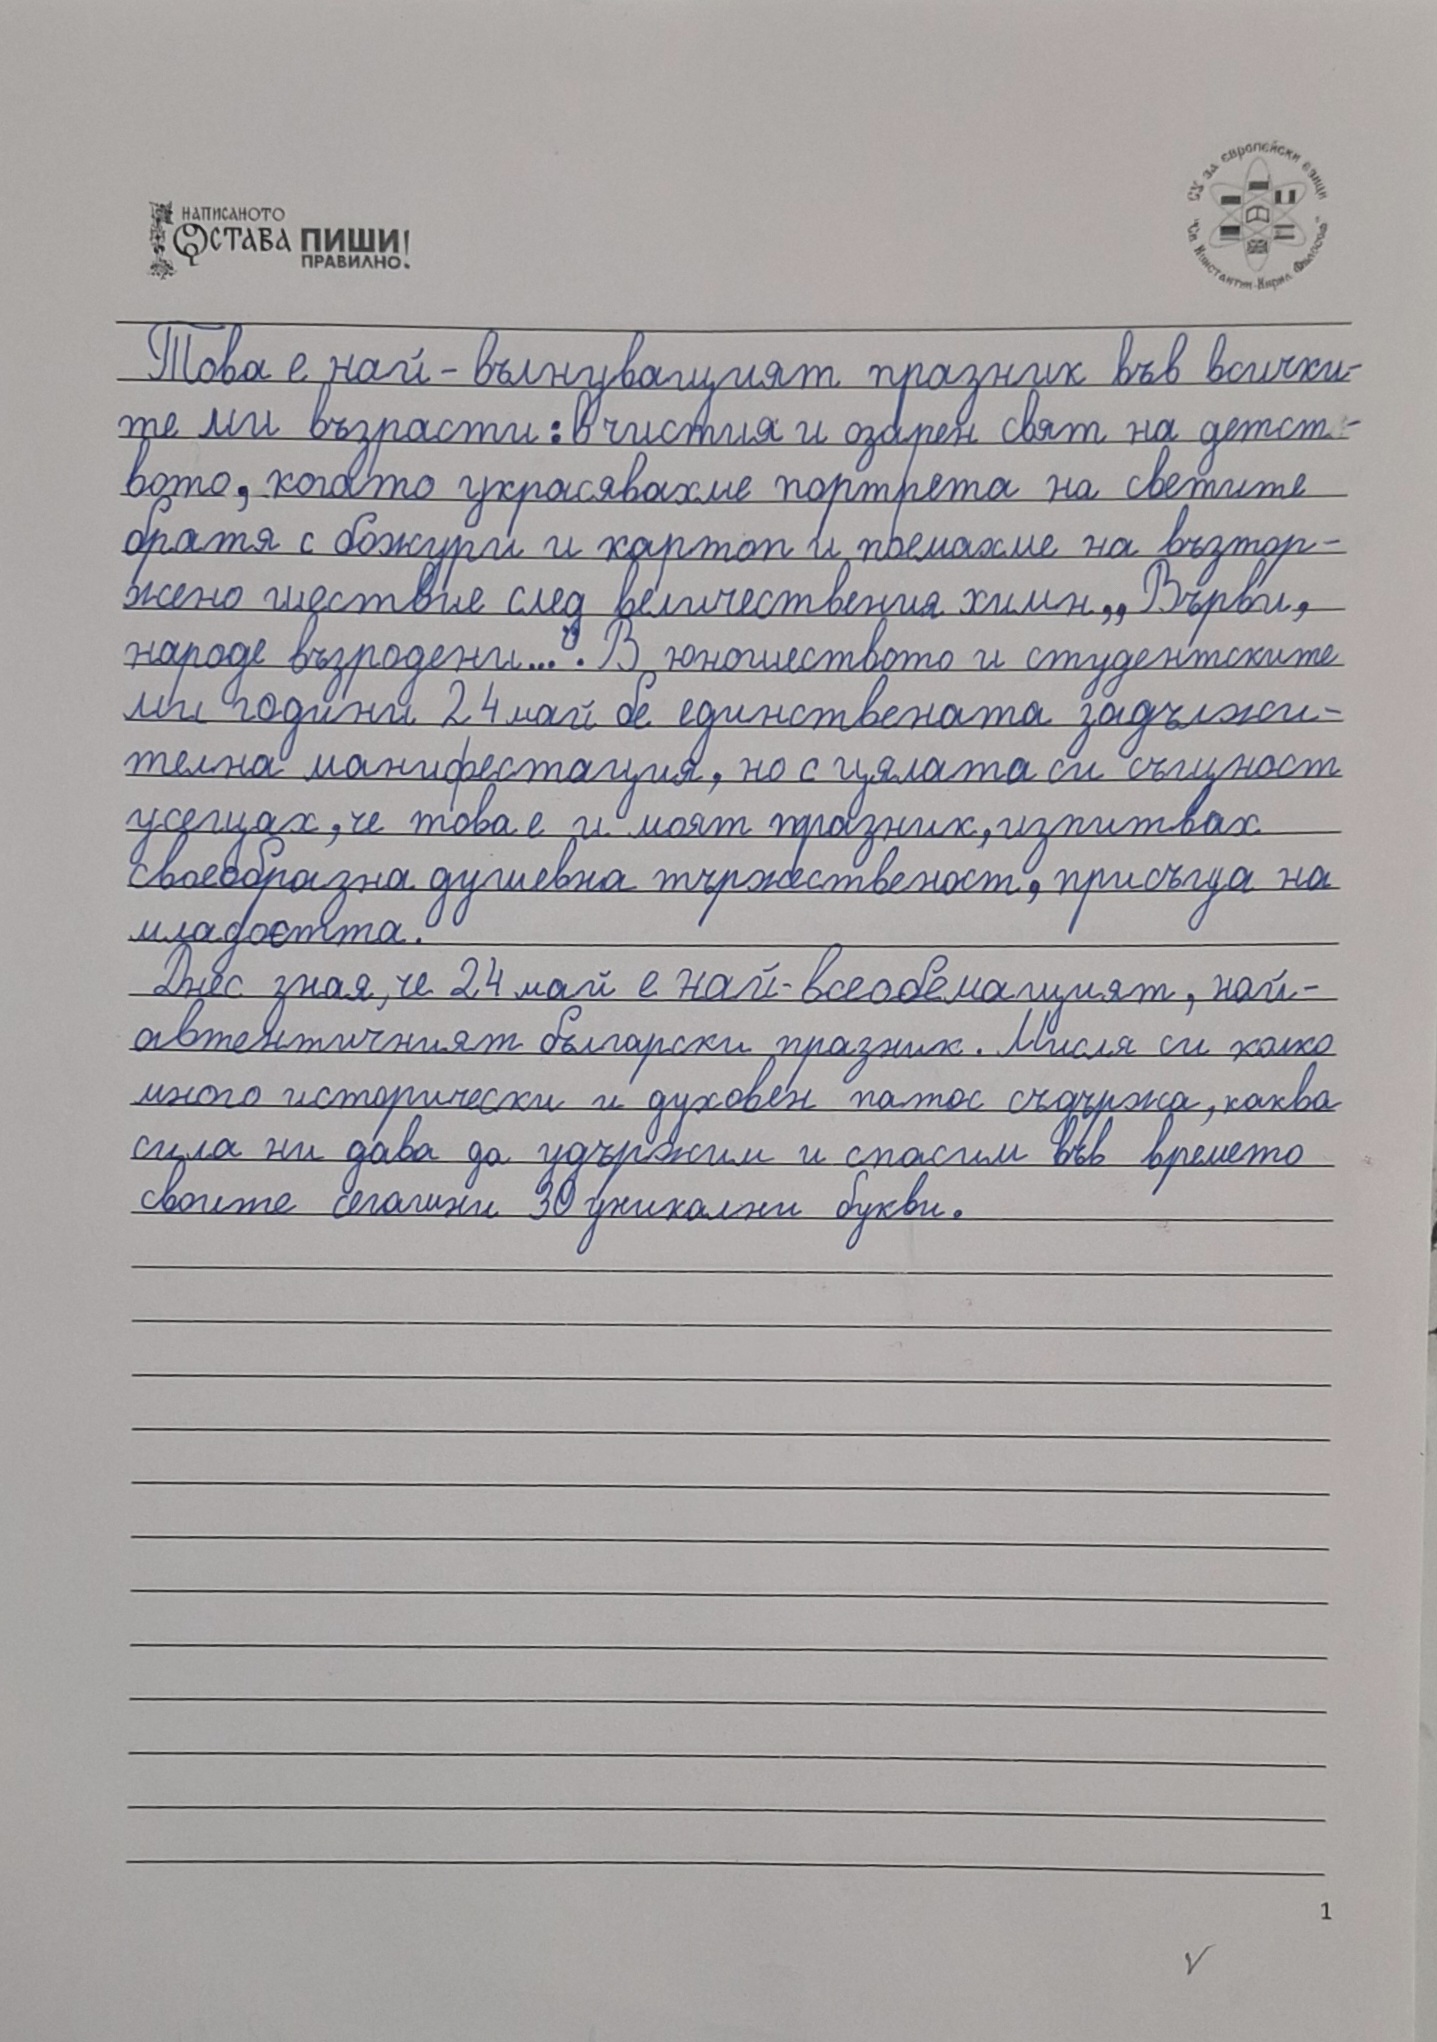 НАПИСАНОТО
ОСТАВА ПИШИ
ПРАВИЛНО!
СУ за европейски езици
"Св. Константин-Кирил Философ"
Това е най-вълнуващият празник във всички-
те ми възрасти: в чистия и озарен свят на детст-
вото, когато украсявахме портрета на светите
братя с божури и картоп и поемахме на възтор-
жено шествие след величествения химн „Върви,
народе възродени...“. В юношеството и студентските
ми години 24 май бе единствената задължи-
телна манифестация, но с цялата си същност
усещах, че това е и моят празник, изпитвах
своеобразна душевна тържественост, присъща на
младостта.
Днес зная, че 24 май е най-всеобемащият, най-
автентичният български празник. Мисля си колко
много исторически и духовен патос съдържа, каква
сила ни дава да удържим и спасим във времето
своите сегашни 30 уникални букви.
1